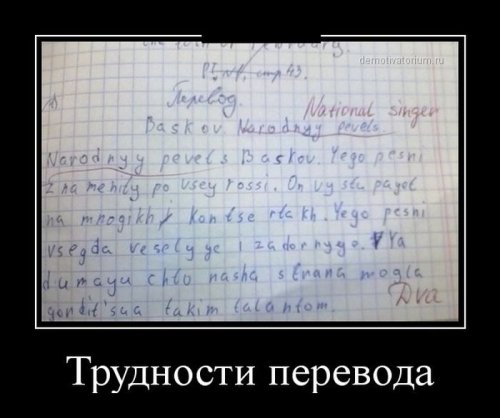 the form of February.
demotivatorium.ru
№1, стр 43.
Перевод.
National singer
Baskov. Narodnyy pevets.
Narodnyy pevets Baskov. Yego pesni
znamenity po vsey rossi. On vystupayet
na mnogikh kontsertakh. Yego pesni
vsegda veselyye i zadornyye. Ya
dumayu chto nasha strana mogla
gordit'sua takim talantom.
Dva
Трудности перевода